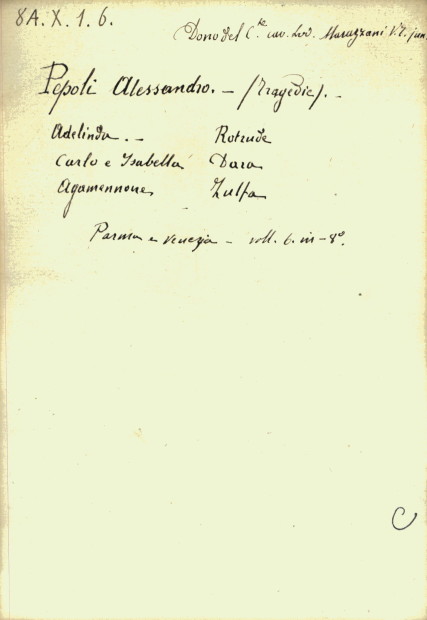 8A.X.1.6.
Dono del C.te cav. Lod. Maruzzani V.T. jun.
Pepoli Alessandro. - (Tragedie). -
Adelinda. - Rotrude
Carlo e Isabella Dara
Agamennone Zulfa
Parma e Venezia - voll. 6. in-8º.
C